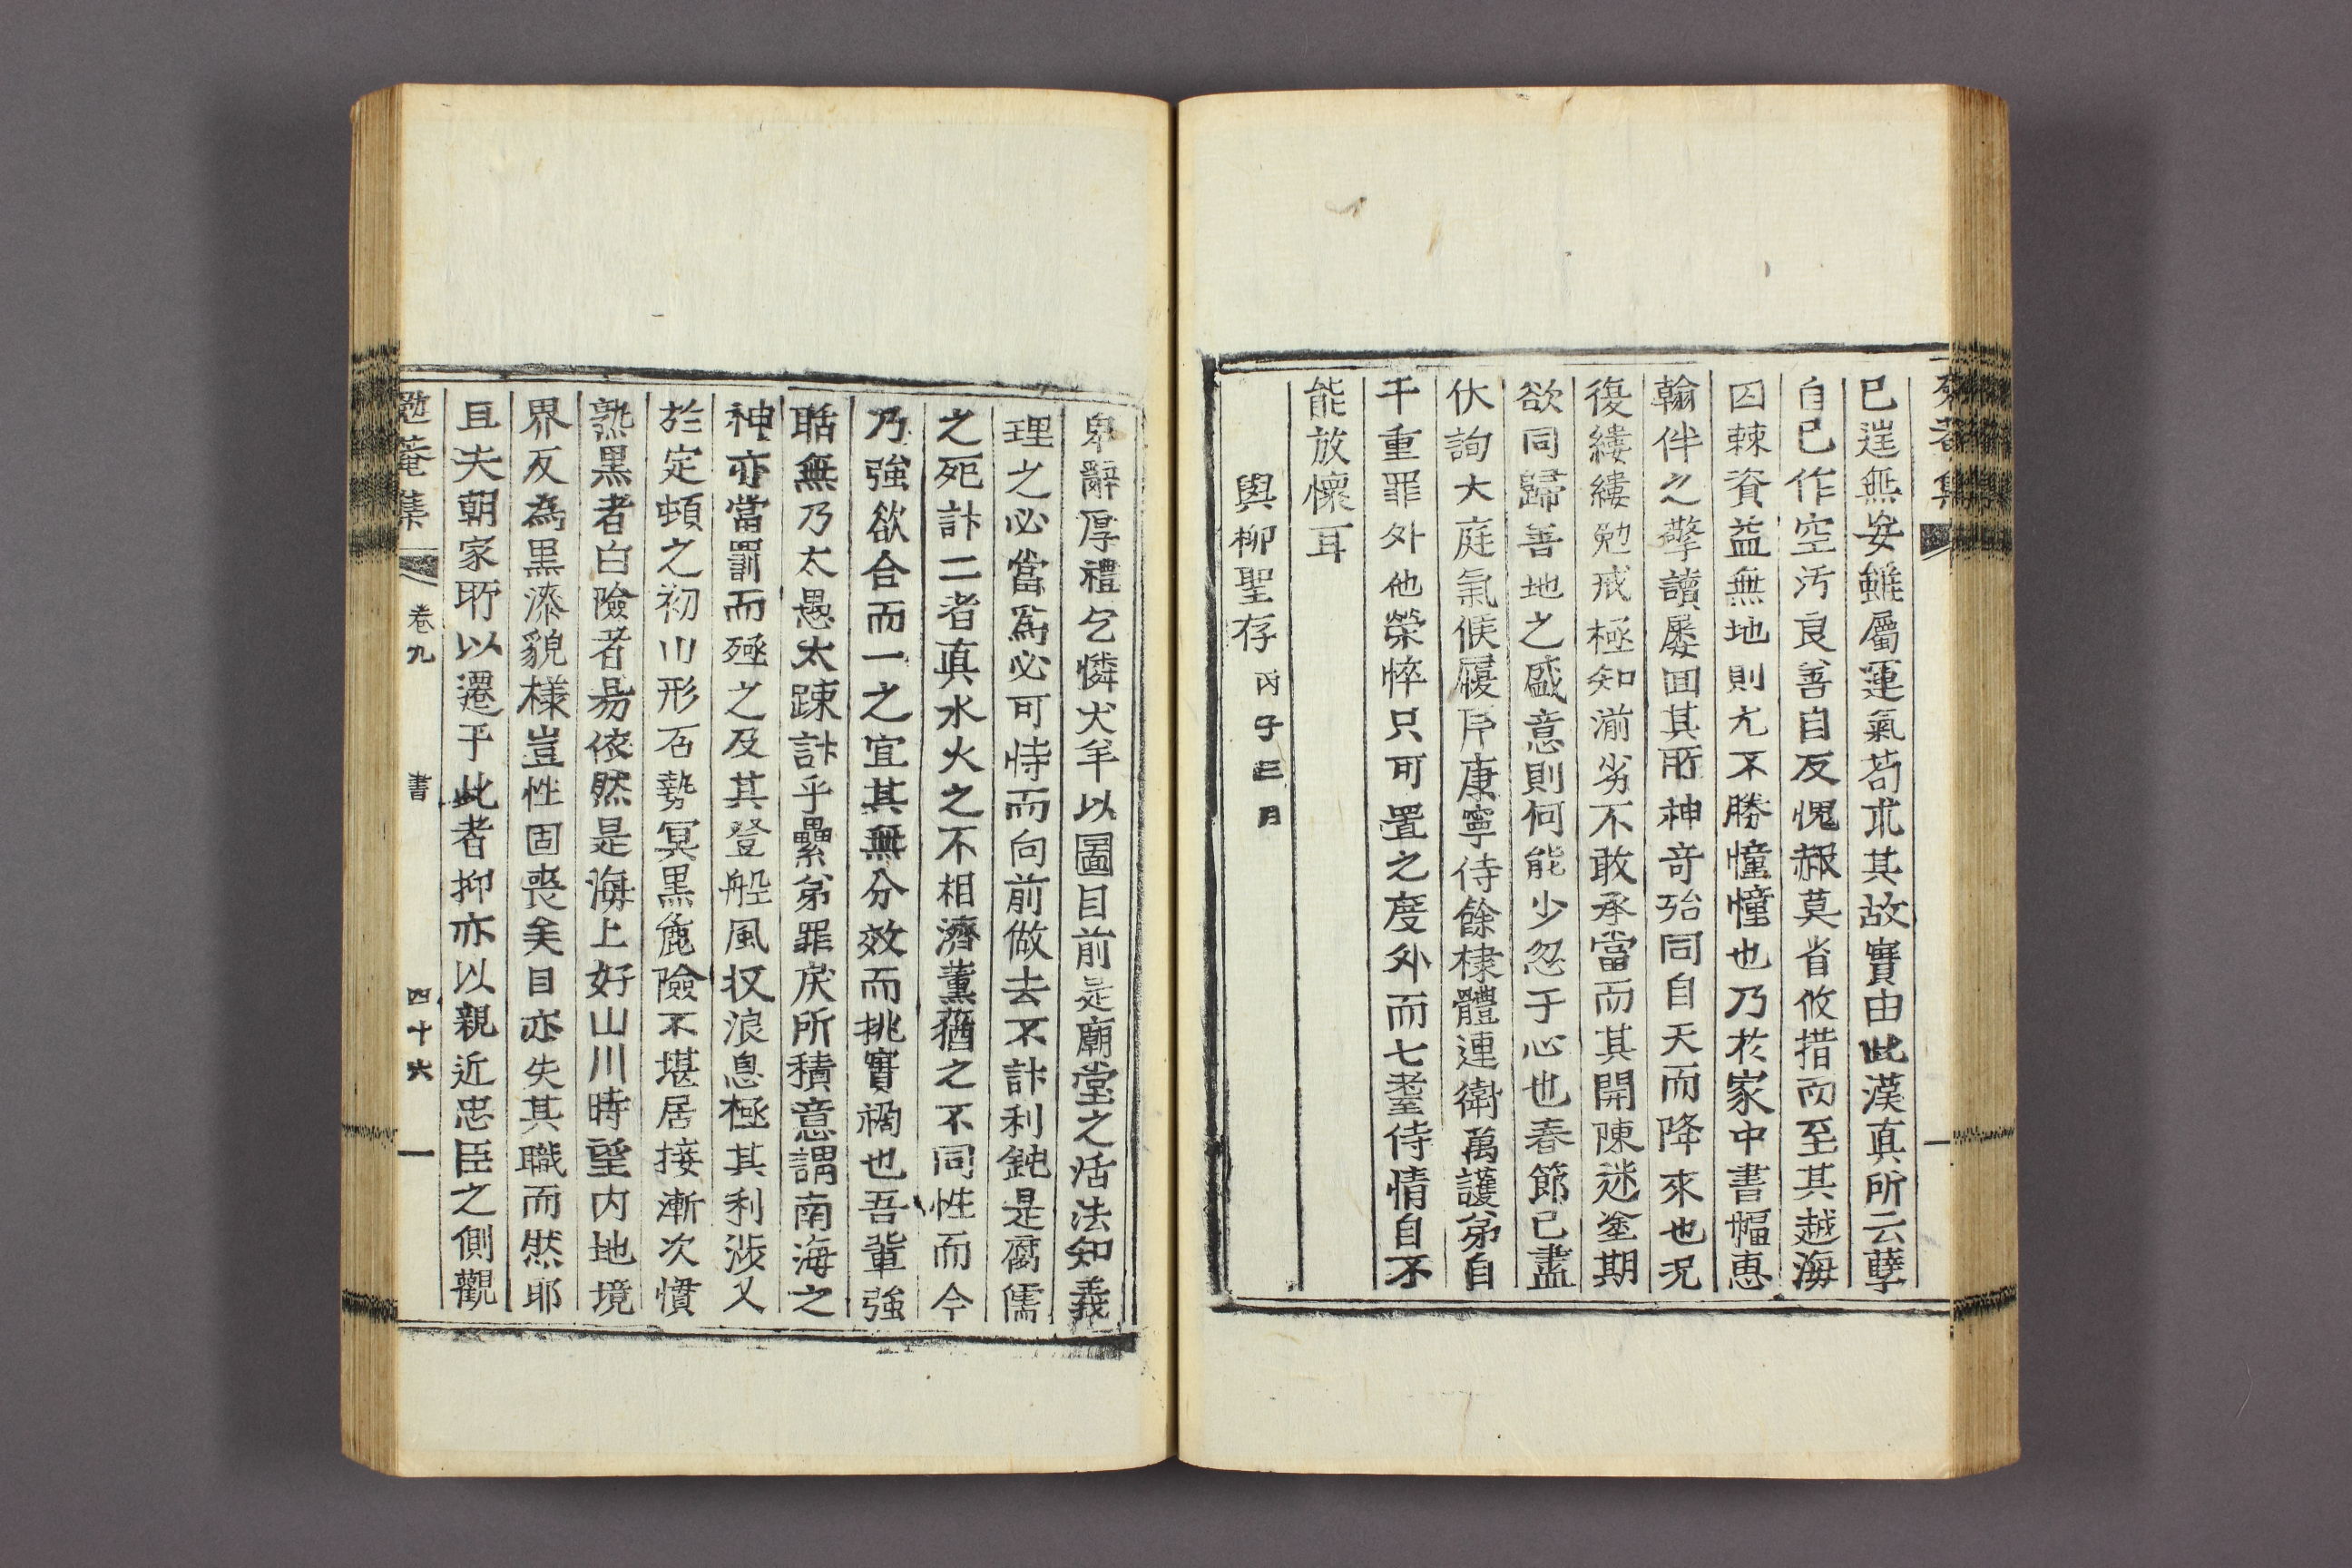 已逞無安雖屬運氣苟求其故實由此漢真所云孽
自己作空汚良善自反愧赧莫省攸措而至其越海
囚棘資益無地則尤不勝憧憧也乃於家中書幅惠
翰伴之擎讀屢回其所神奇殆同自天而降來也況
復縷縷勉戒極知湔劣不敢承當而其開陳迷塗期
欲同歸善地之盛意則何能少忽于心也春節已盡
伏詢大庭氣候履戶康寧侍餘棣體連衛萬護弟自
干重罪外他榮悴只可置之度外而七耋侍情自不
能放懷耳
與柳聖存 丙子三月
卑辭厚禮乞憐犬羊以圖目前是廟堂之活法知義
理之必當爲必可恃而向前做去不計利鈍是腐儒
之死計二者真水火之不相濟薰蕕之不同性而今
乃強欲合而一之宜其無分效而挑實禍也吾輩強
聒無乃太愚太踈計乎纍弟罪戾所積意謂南海之
神亦當罰而殛之及其登船風收浪息極其利涉又
於定頓之初山形石勢冥黑麁險不堪居接漸次慣
熟黑者白險者易依然是海上好山川時望內地境
界反為黑漆貌樣豈性固喪矣目亦失其職而然耶
且夫朝家所以遷于此者抑亦以親近忠臣之側觀
勉菴集 卷九 書 四十六